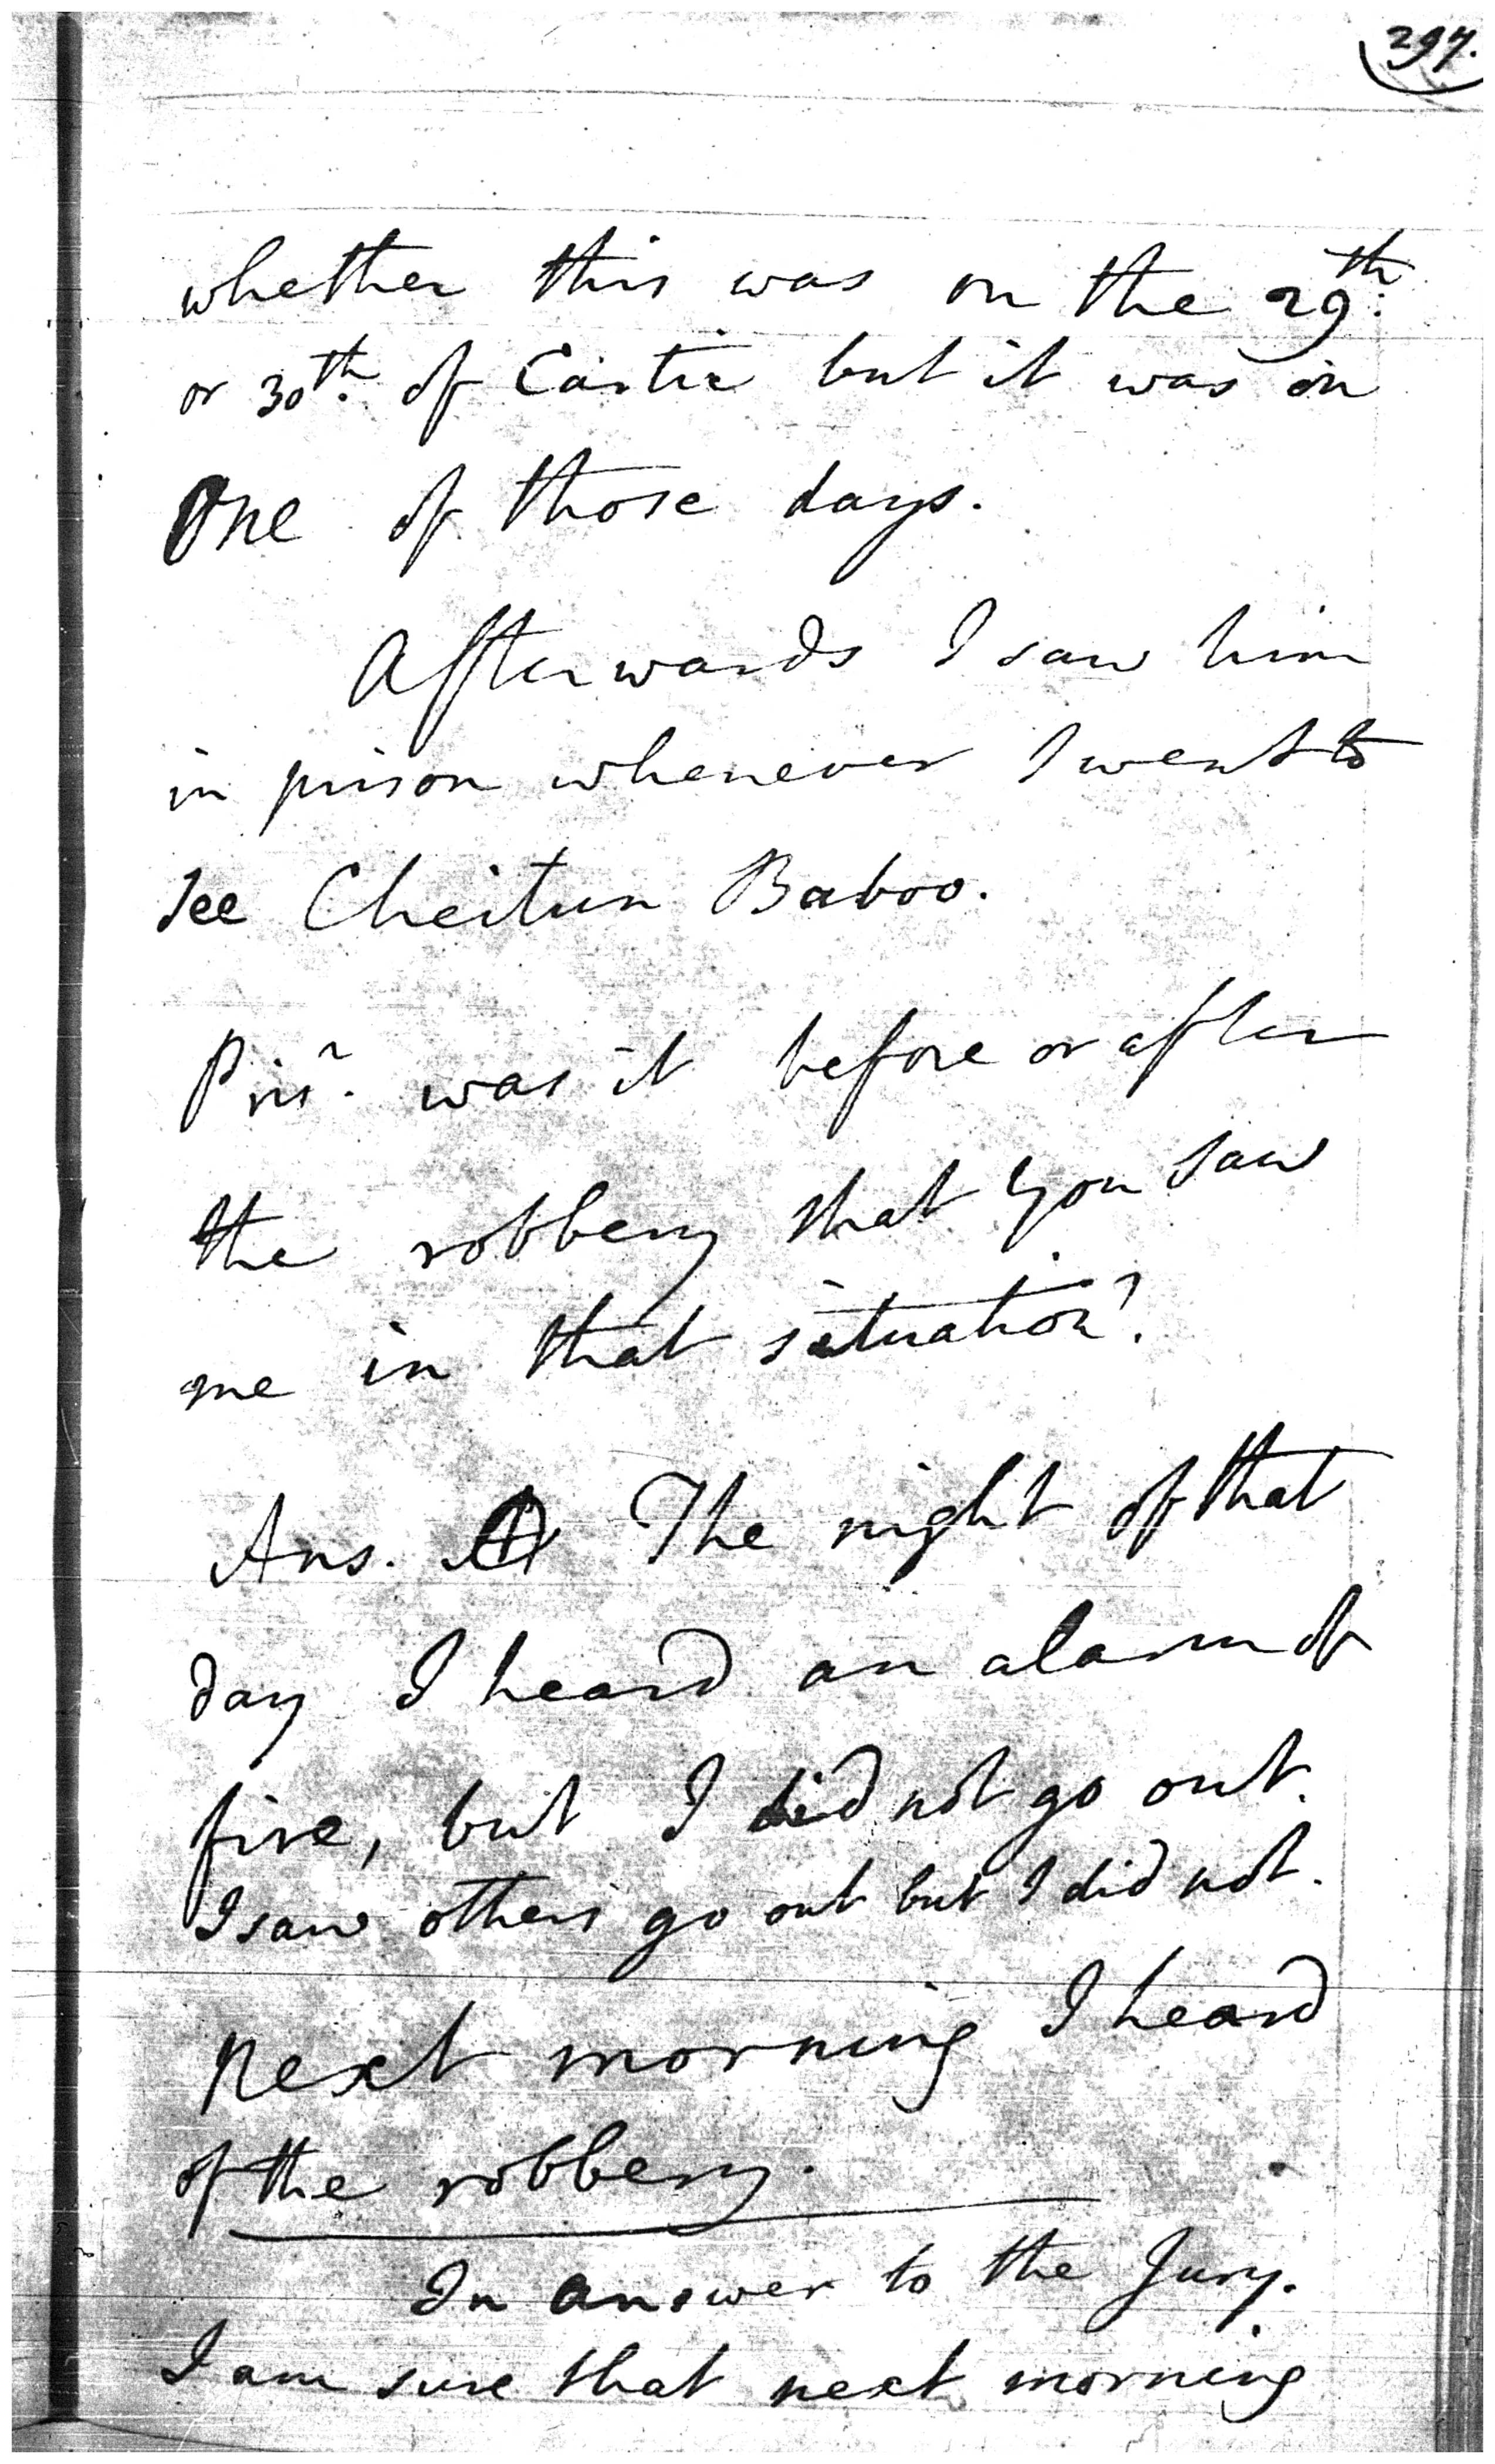 297.
whether this was on the 29th.
or 30th. of Cartic but it was on
one of those days.
Afterwards I saw him
in prison whenever I went to
see Cheitun Baboo.
Prisr. was it before or after
the robbery that you saw
me in that situation?
Ans. The night of that
day I heard an alarm of
fire, but I did not go out.
I saw others go out but I did not.
next morning I heard
of the robbery.
In answer to the Jury.
I am sure that next morning